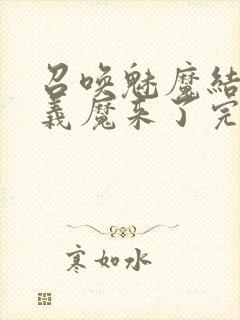 召唤魅魔结
義魔来了完
寒如水